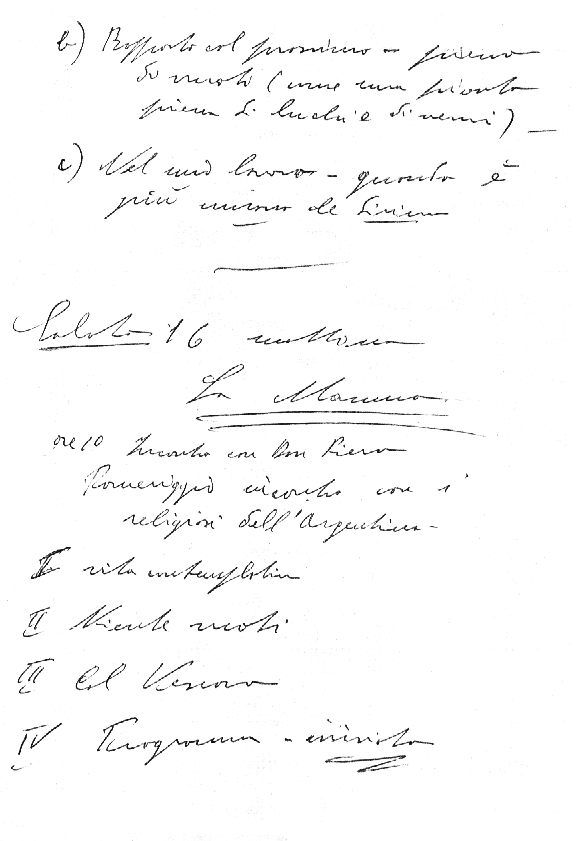 b) Rapporto col prossimo - pieno
di nuoti (come una pianta
piena di buchi e di vermi) -
c) Nel mio lavoro - quando è
più umano che divino
Sabato 16 mattina
La Mamma
ore 10 Incontro con Don Piero
Pomeriggio incontro con i
religiosi dell'Argentina -
I vita contemplativa
II Niente nuoti
III Col Vescovo
IV Programma -